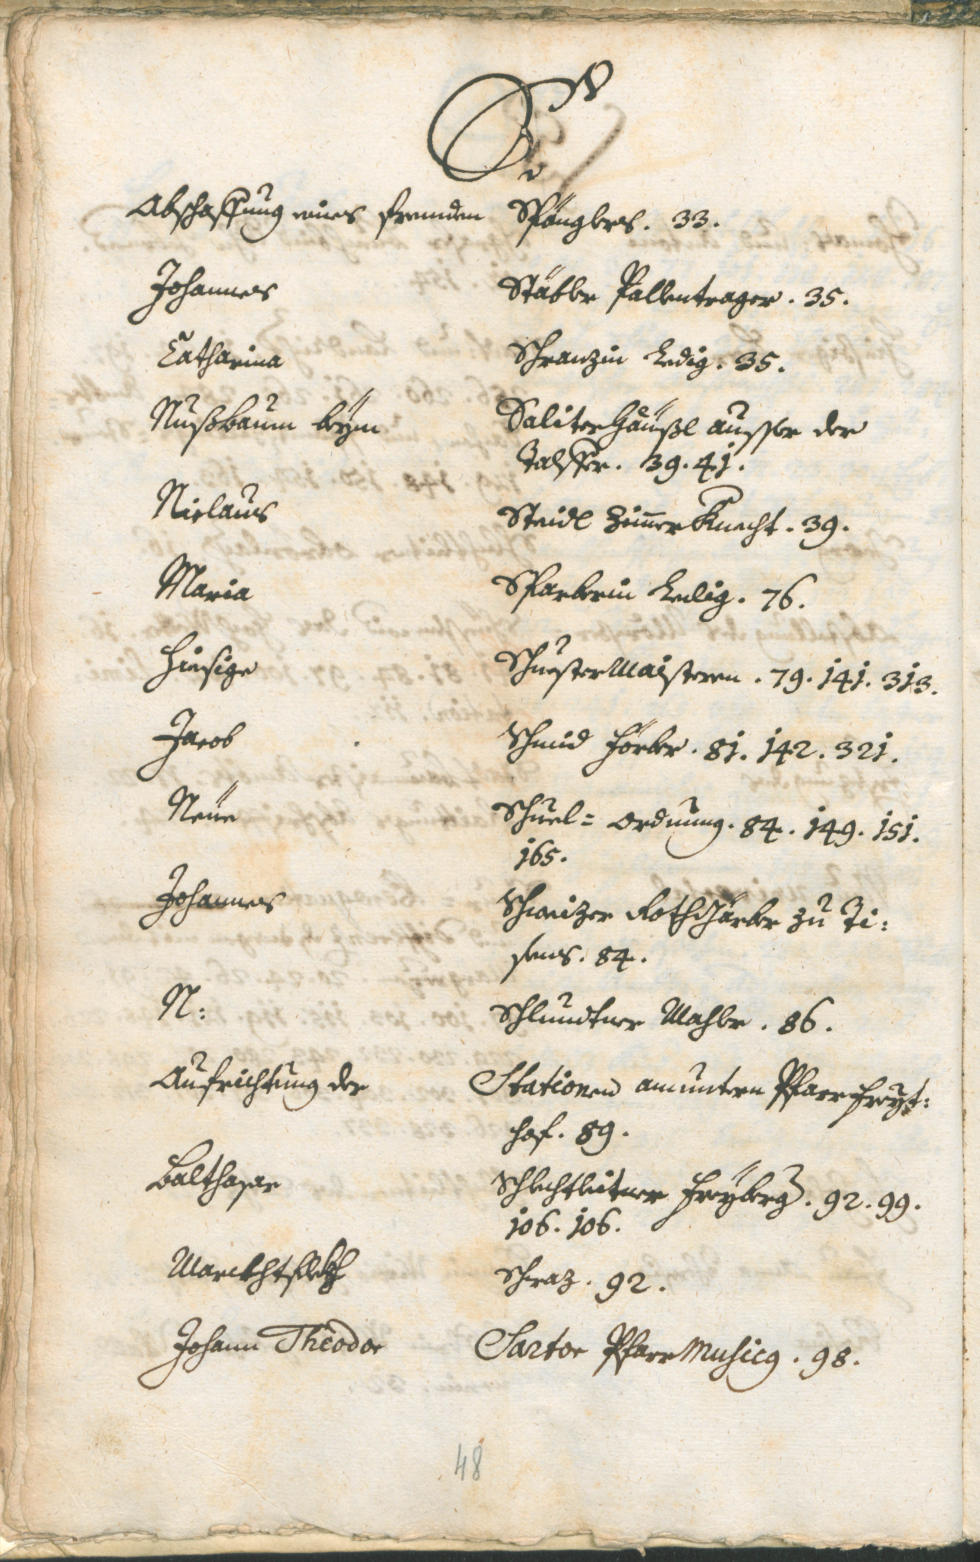 S
Abschaffung eines frembden Spänglers. 33.
Johannes Stäbler Pallentrager. 35.
Catharina Schranzin Ledig. 35.
Nußbaum beÿm Saliterhäußl ausser der
Talffer. 39. 41.
Niclaus Steidl Zimerknecht. 39.
Maria Sparberin Ledig. 76.
Hiesige Schuestermaisteren. 79. 141. 313.
Jacob Schmid Förber. 81. 142. 321.
Neüe Schuel= ordnung. 84. 149. 151.
165.
Johannes Schweizer Rothfärber zu Ti:
sens. 84.
N: Schlundtner Mahler. 86.
Aufrichtung der Stationen am untern Pfarrfreyt:
hof. 89.
Balthasar Schlechtleitner Freÿberg. 92. 99.
106. 106.
Schraz. 92.
Johann Theodor Sartor Pfarr Musicq. 98.
48